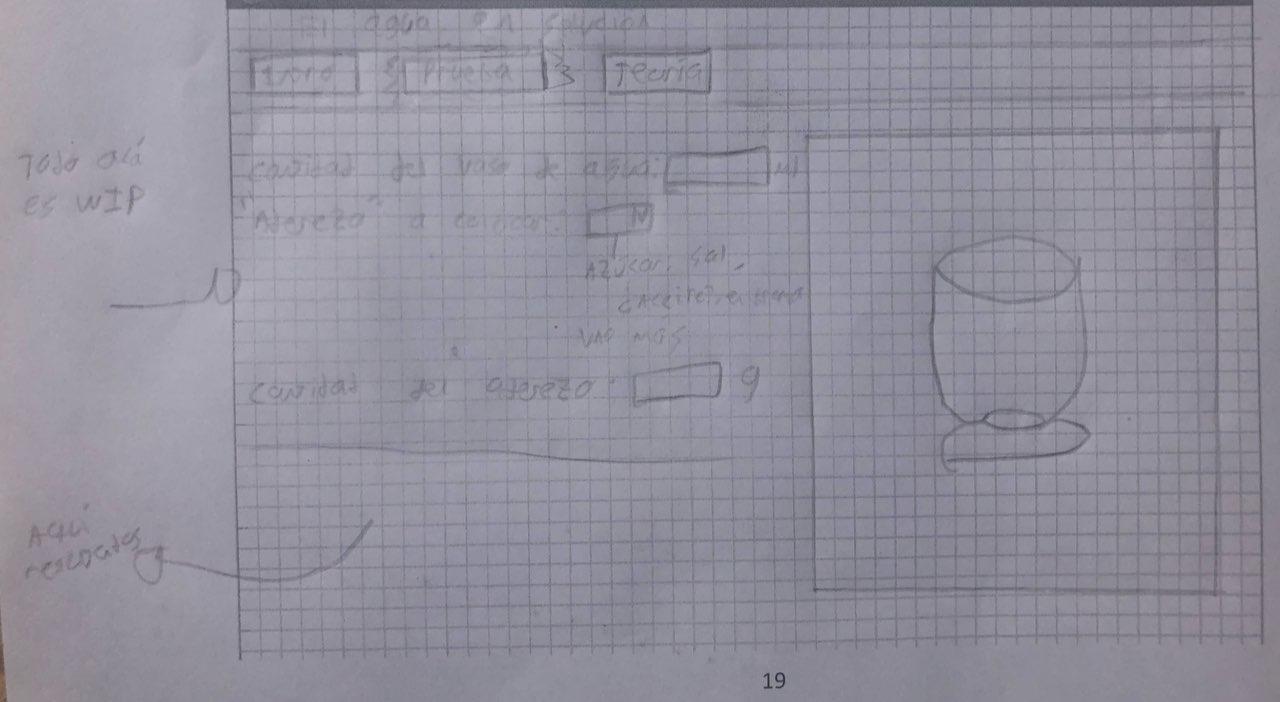 El agua en solución
Intro Prueba Teoría
Todo acá
es WIP
Cantidad del vaso de agua: ml
"Aderezo" a colocar:
Azúcar, sal,
Vas más
Cantidad del aderezo: g
Aquí
resultados
19